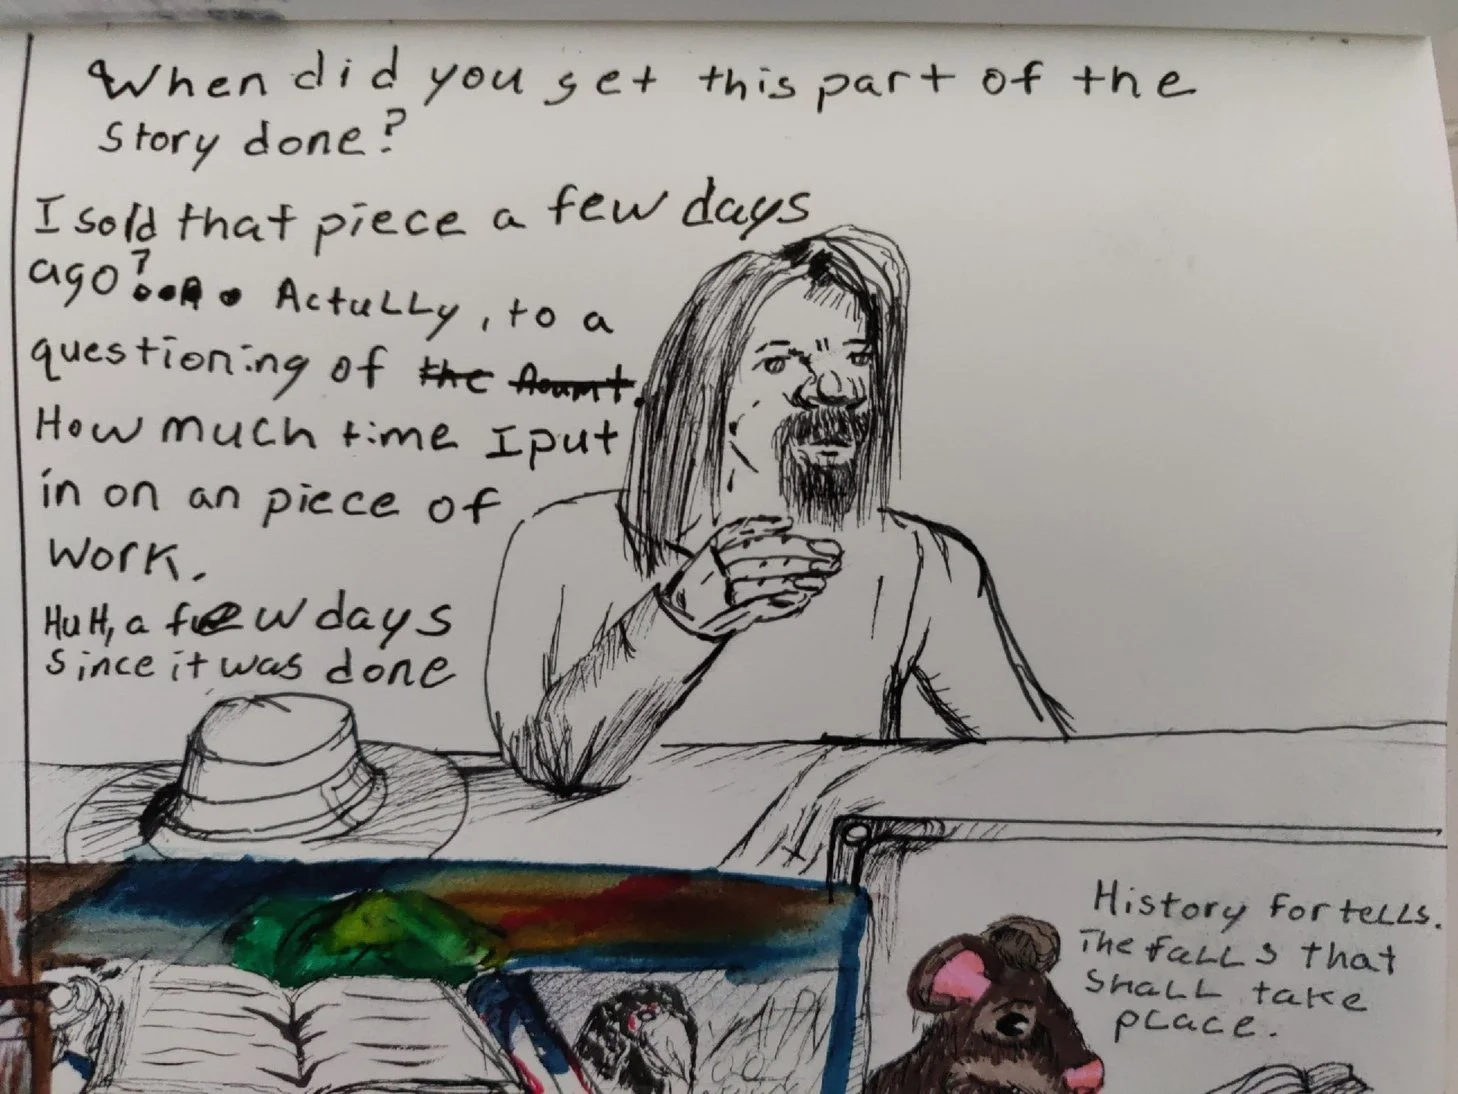 When did you get this part of the
Story done?
I sold that piece a few days
ago?... Actully, to a
questioning of the
How much time I put
in on an piece of
Work.
HuH, a few days
since it was done
History for tells.
The falls that
shall take
place.